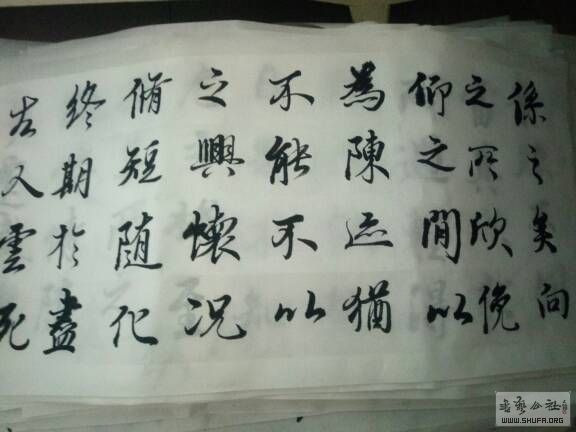 係之矣向
之所欣俛
仰之間以
為陳迹猶
不能不以
之興懷况
脩短随化
終期於盡
古人雲死
书艺公社
WWW.SHUFA.ORG